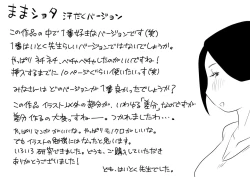 ままショタ 汗だくバージョン
この作品の中で1番好きなバージョンです(笑)
1番はいとく先生らしいバージョンではないでしょうか。
やっぱり ネチネチ、ベチャベチャしたのがいいですね!
挿入するまでに 10ページぐらい使いたい。(笑)
みなさんは どのバージョンが1番良かったでしょう?
この作品 イラスト以外の部分が、いわゆる「差分」なのですが
差分作るの大変。ですね ー。 つかれました・・・。
やっぱりマンガがいいな。やっぱりモノクロがいいな。
でもイラストの勉強にはなったと思います。
いろいろ研究できました。どうも、ご購入していただき
ありがとうございました!
でわ、はいとく先生でした。